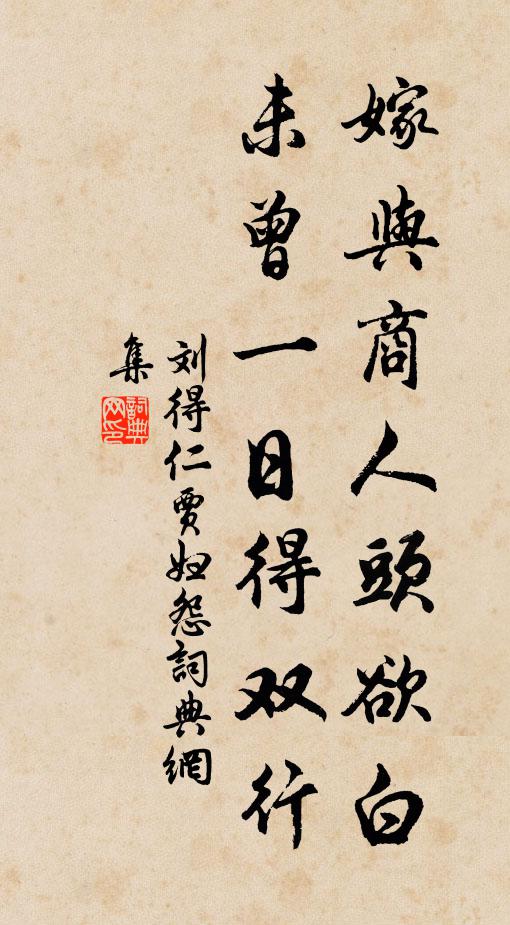 嫁與商人頭欲白
未曾一日得双行
刘得仁賈妇怨詞典網
集
詞典網印